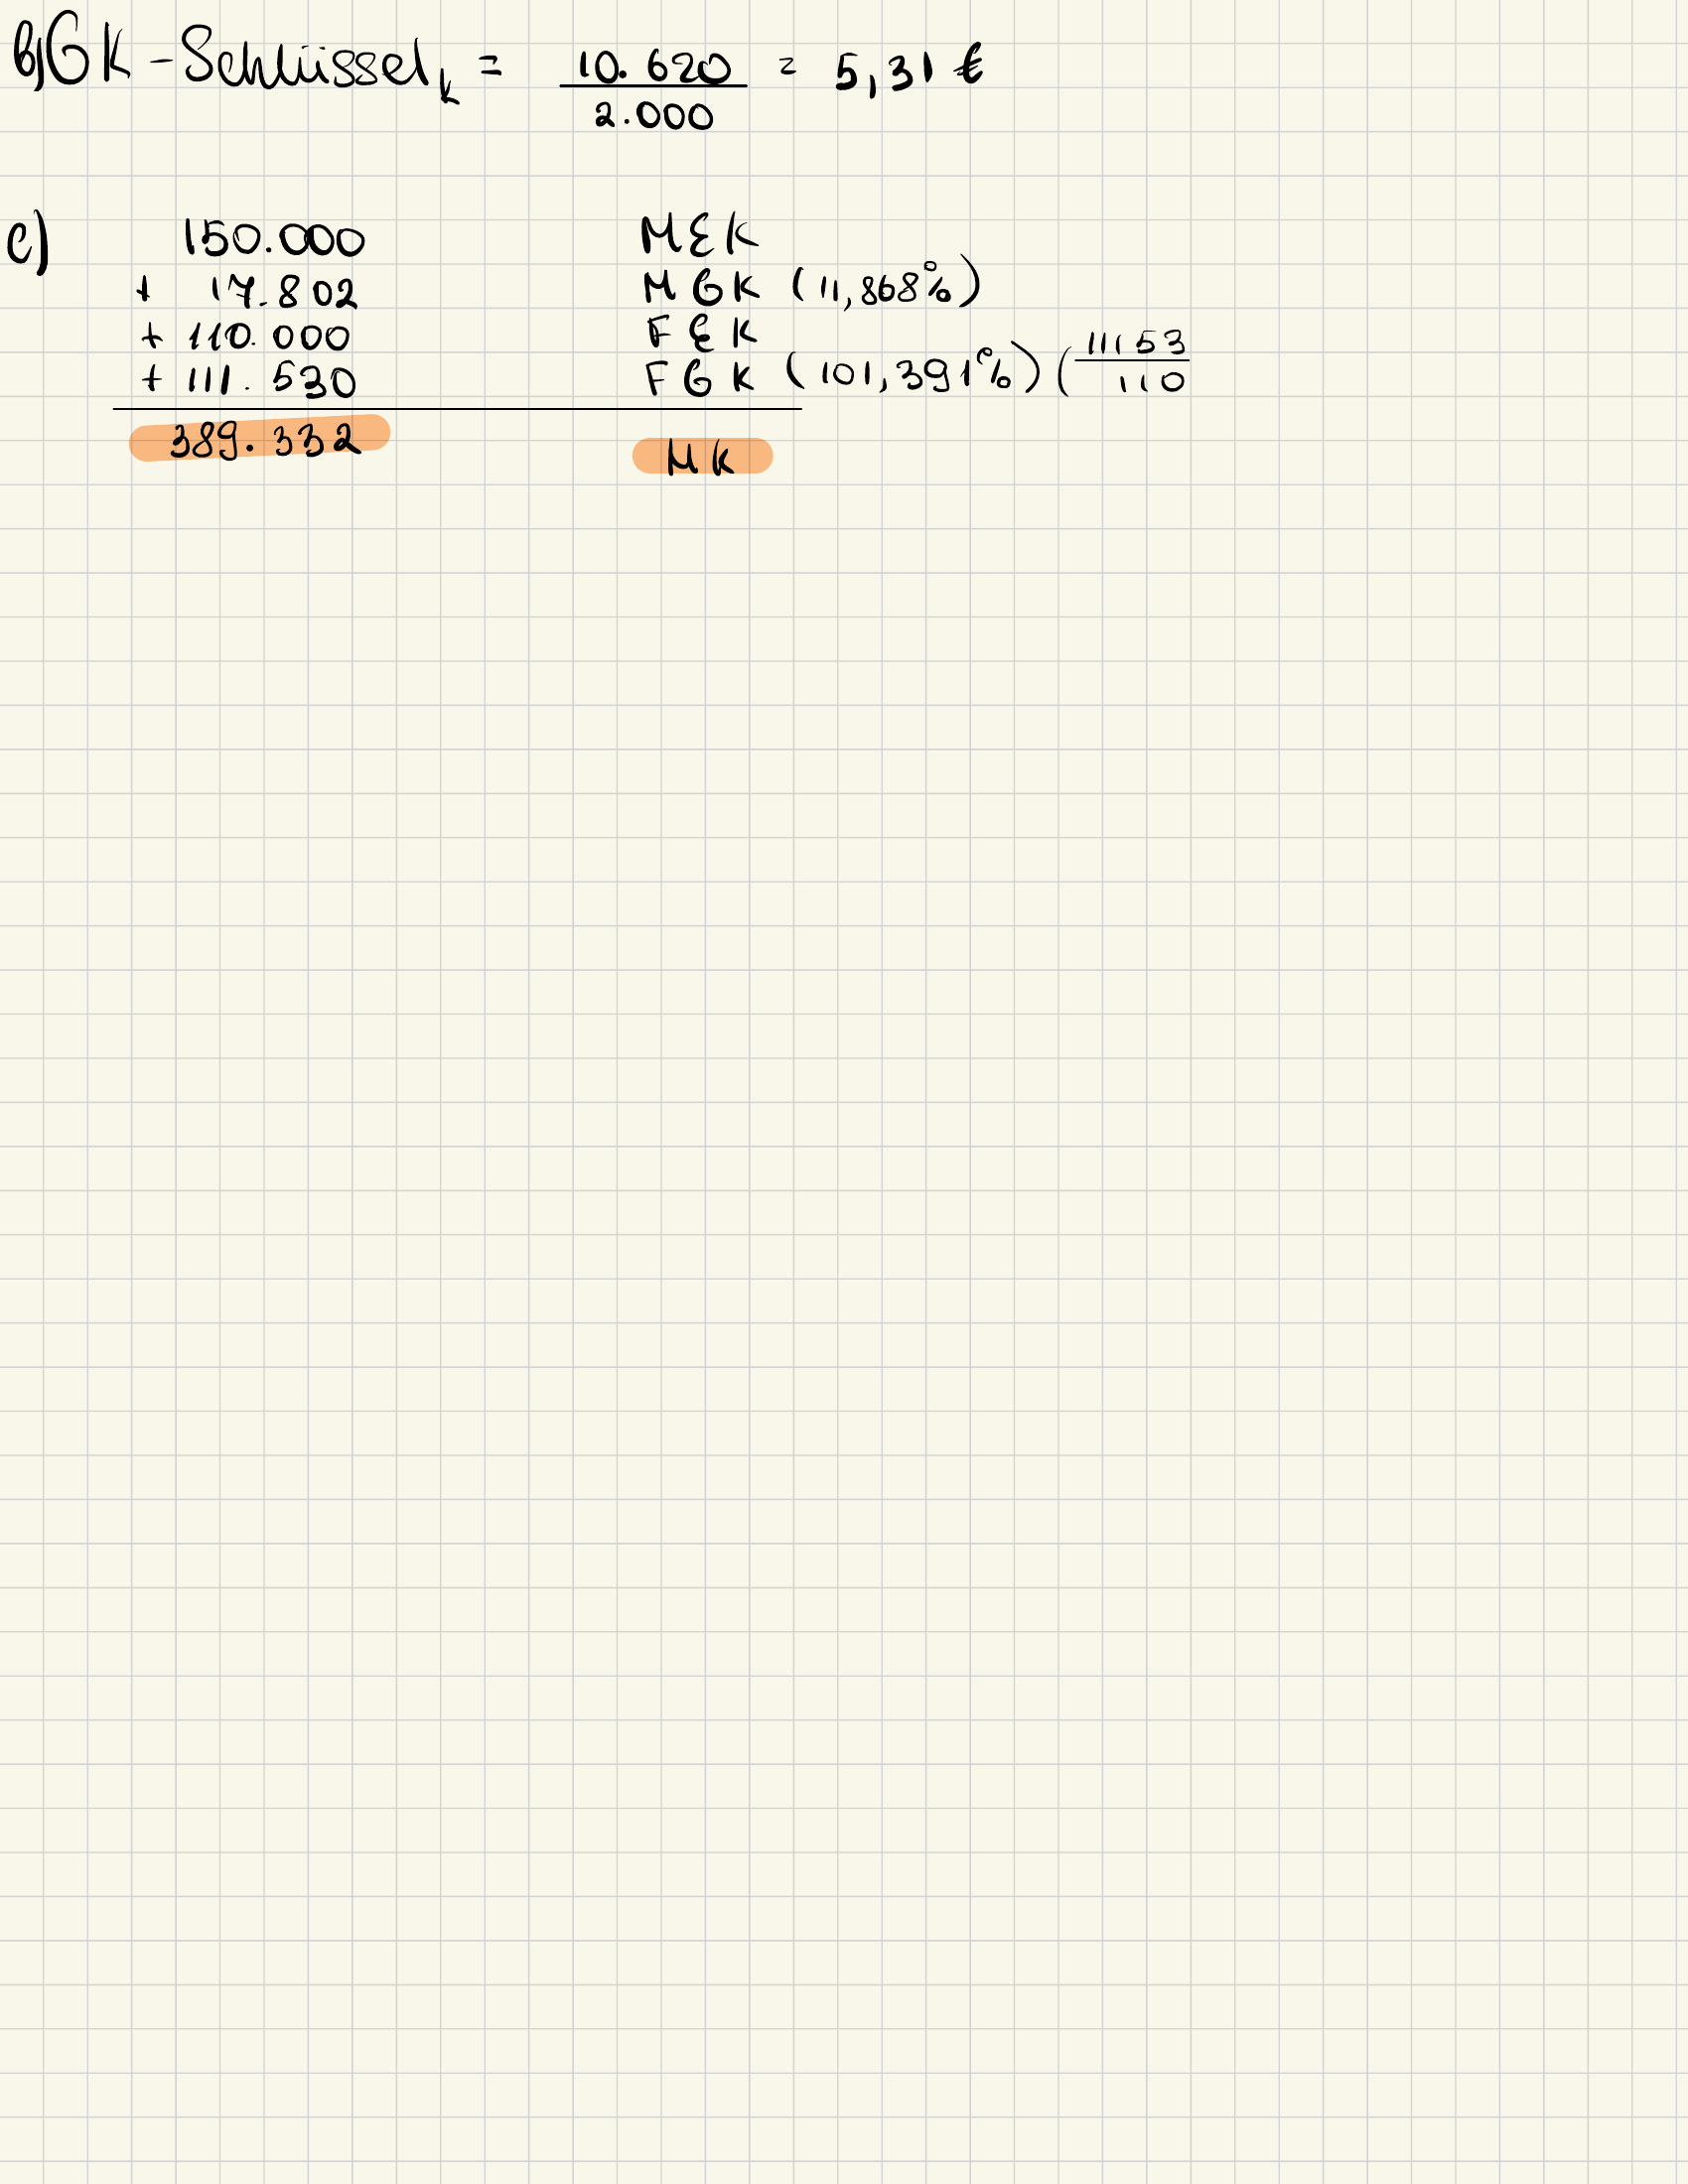 b) GK-Schlüssel k = 10.620 / 2.000 = 5,31 €
c) 150.000 MEK
+ 17.802 MGK (11,868%)
+ 110.000 FEK
+ 111.530 FGK (101,391%) (11153 / 110
389.332 MK